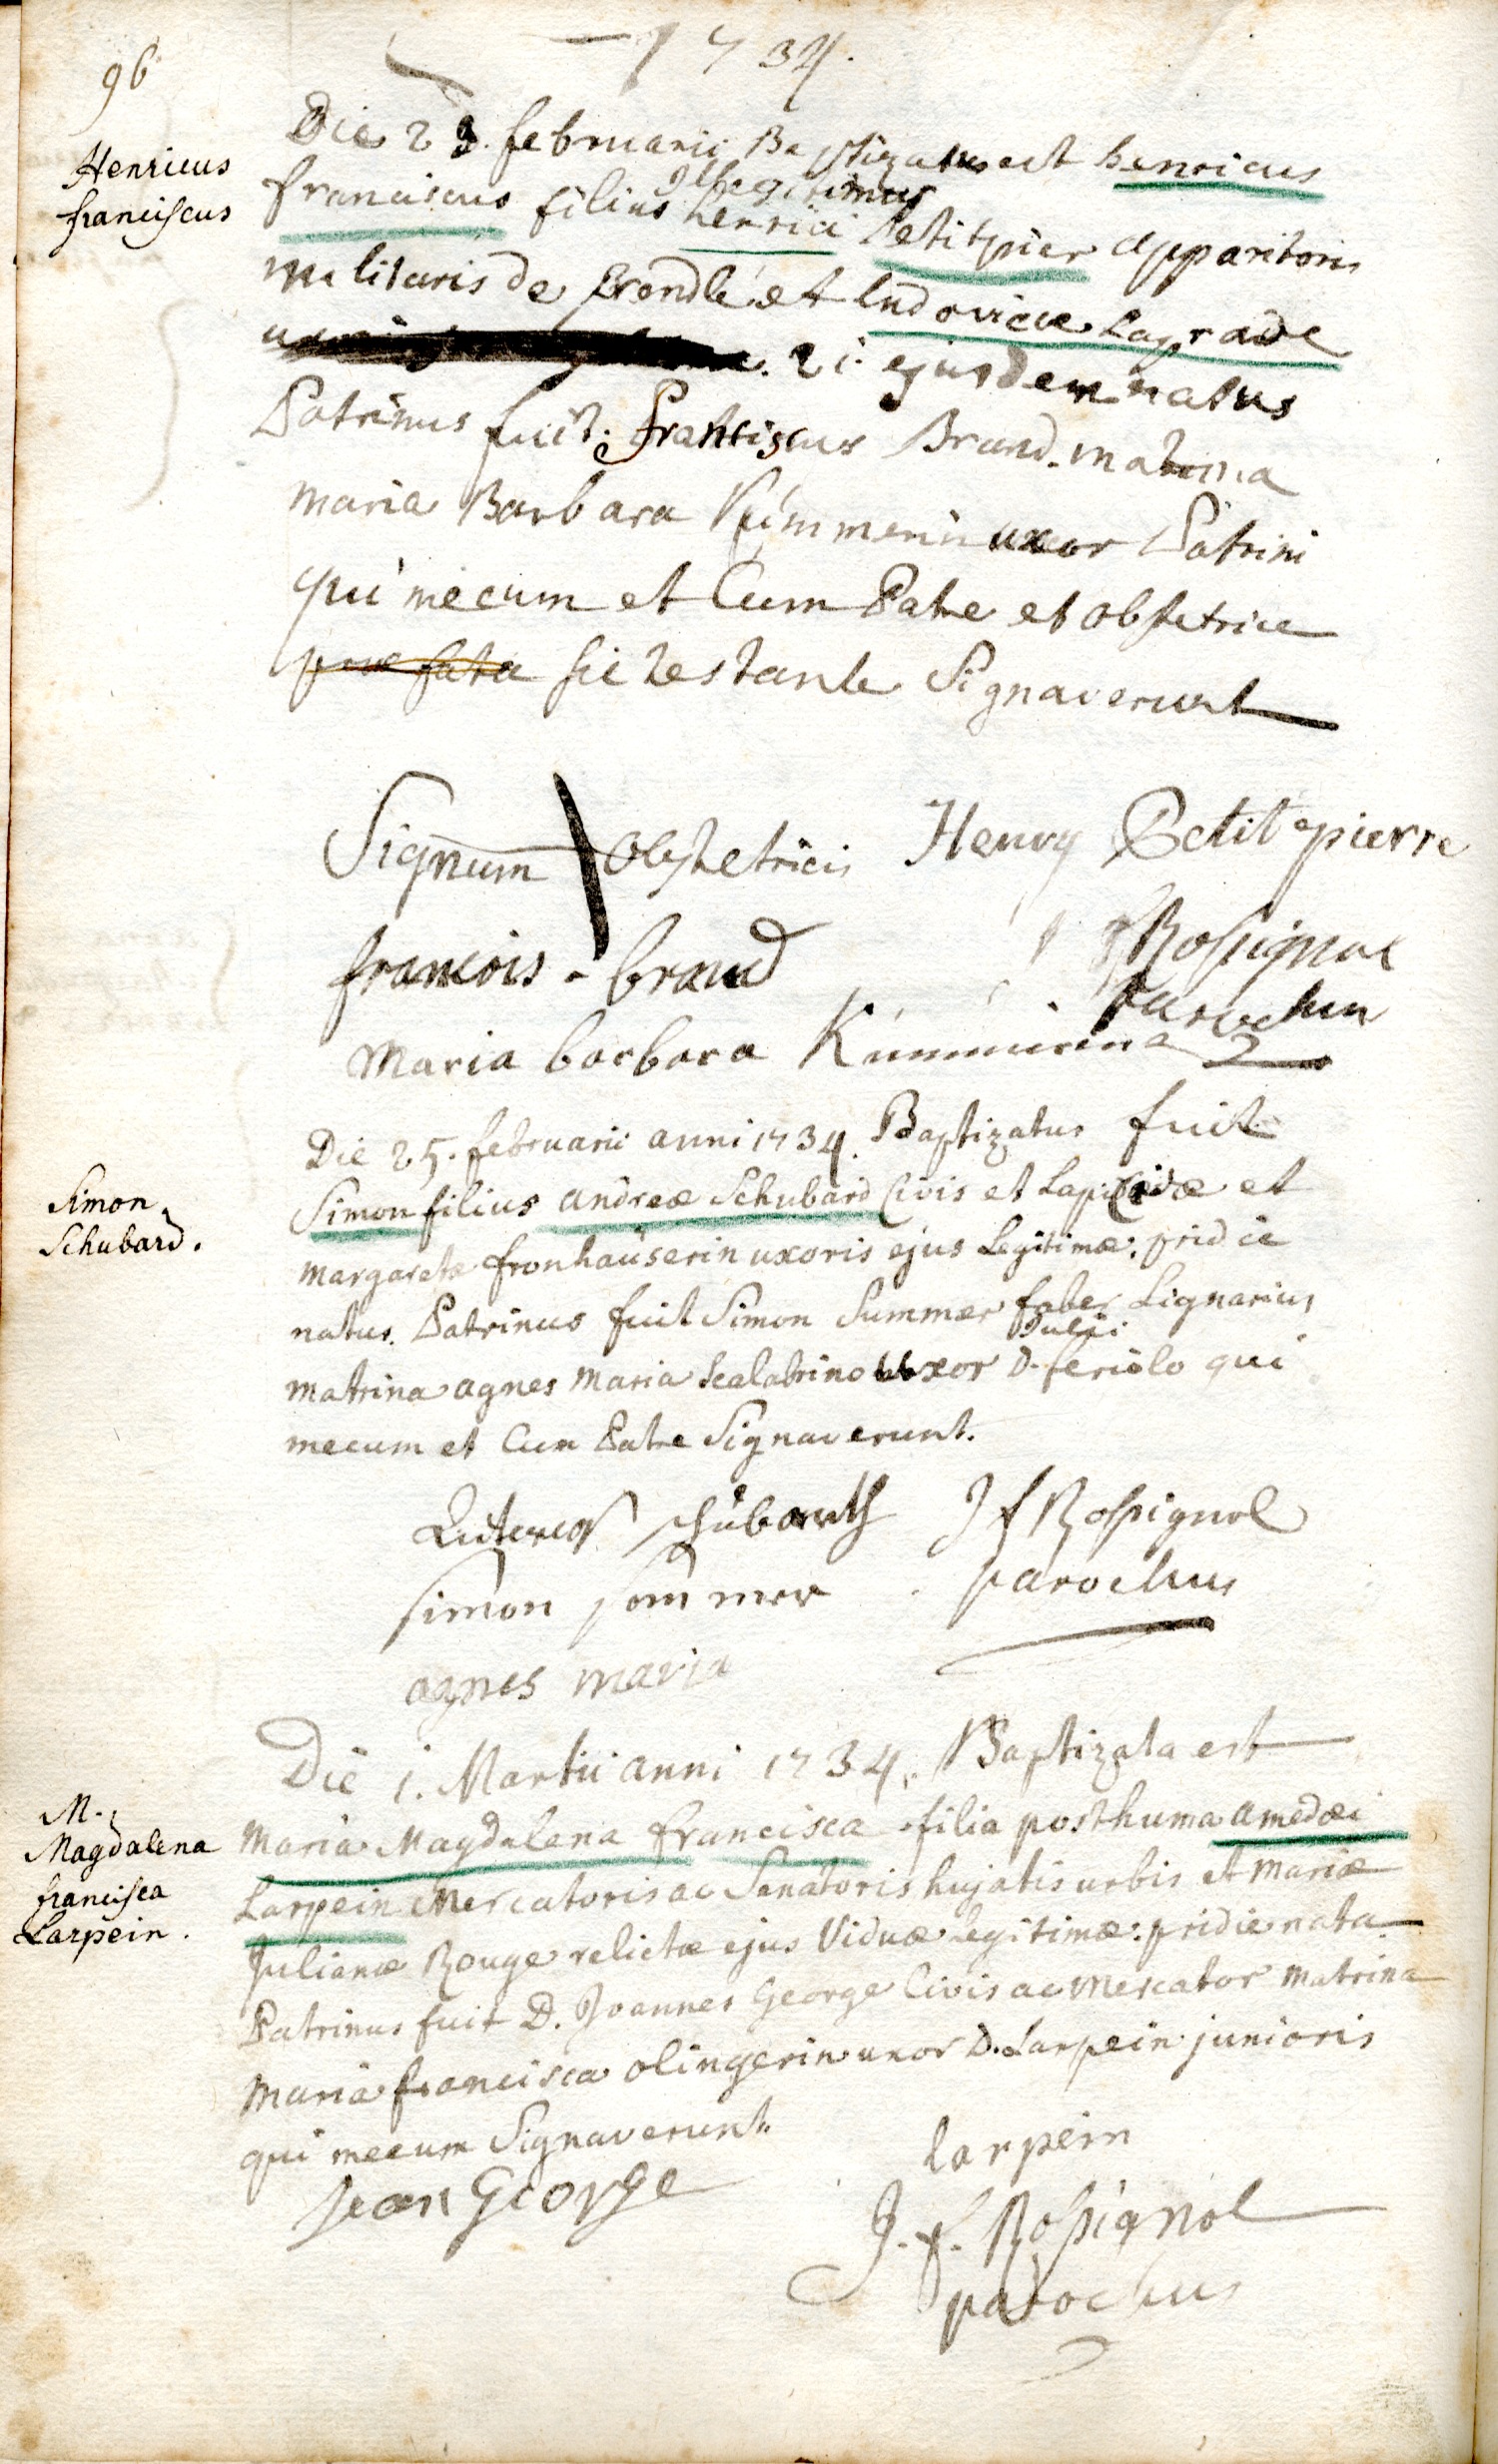 96
1734.
Henricus
franciscus
Die 23. februarii Baptizatus est henricus
illegitimus
franciscus filius henrici Petitpier apparitoris
militaris de et ludovicæ Lagrade
21. ejusdem natus
Patrinus fuit. Franciscus Brand. matrina
maria Barbara Kümmerin uxor Patrini
qui mecum et Cum Patre et obstetrice
præfata sic testante Signaverunt
Signum obstetricis Henry Petit pierre
francois brand Rossignol
parochus
Maria barbara Kümmerina
Simon
Schubard.
Die 25. februarii anni 1734. Baptizatus fuit
Simon filius andreæ Schubard Civis et Lapicidæ et
margaretæ fronhauserin uxoris ejus Legitimæ. pridie
natus. Patrinus fuit Simon Summer faber Lignarius
Julii
matrina agnes maria scalabrino uxor D. feriolo qui
mecum et Cum Patre Signaverunt.
schübarth J f Rossignol
simon sommer parochus
agnes maria
M.
Magdalena
francisca
Larpein.
Die 1. Martii anni 1734. Baptizata est
Maria Magdalena francisca filia posthuma amedæi
Larpein Mercatoris ac Senatoris hujatis urbis et Mariæ
Julianæ Rouge relictæ ejus Viduæ Legitimæ. pridie nata
Patrinus fuit D. Joannes George Civis ac Mercator matrina
maria francisca olingerin uxor D. Larpein junioris
qui mecum Signaverunt.
larpein
Jean George
J. f. Rossignol
parochus